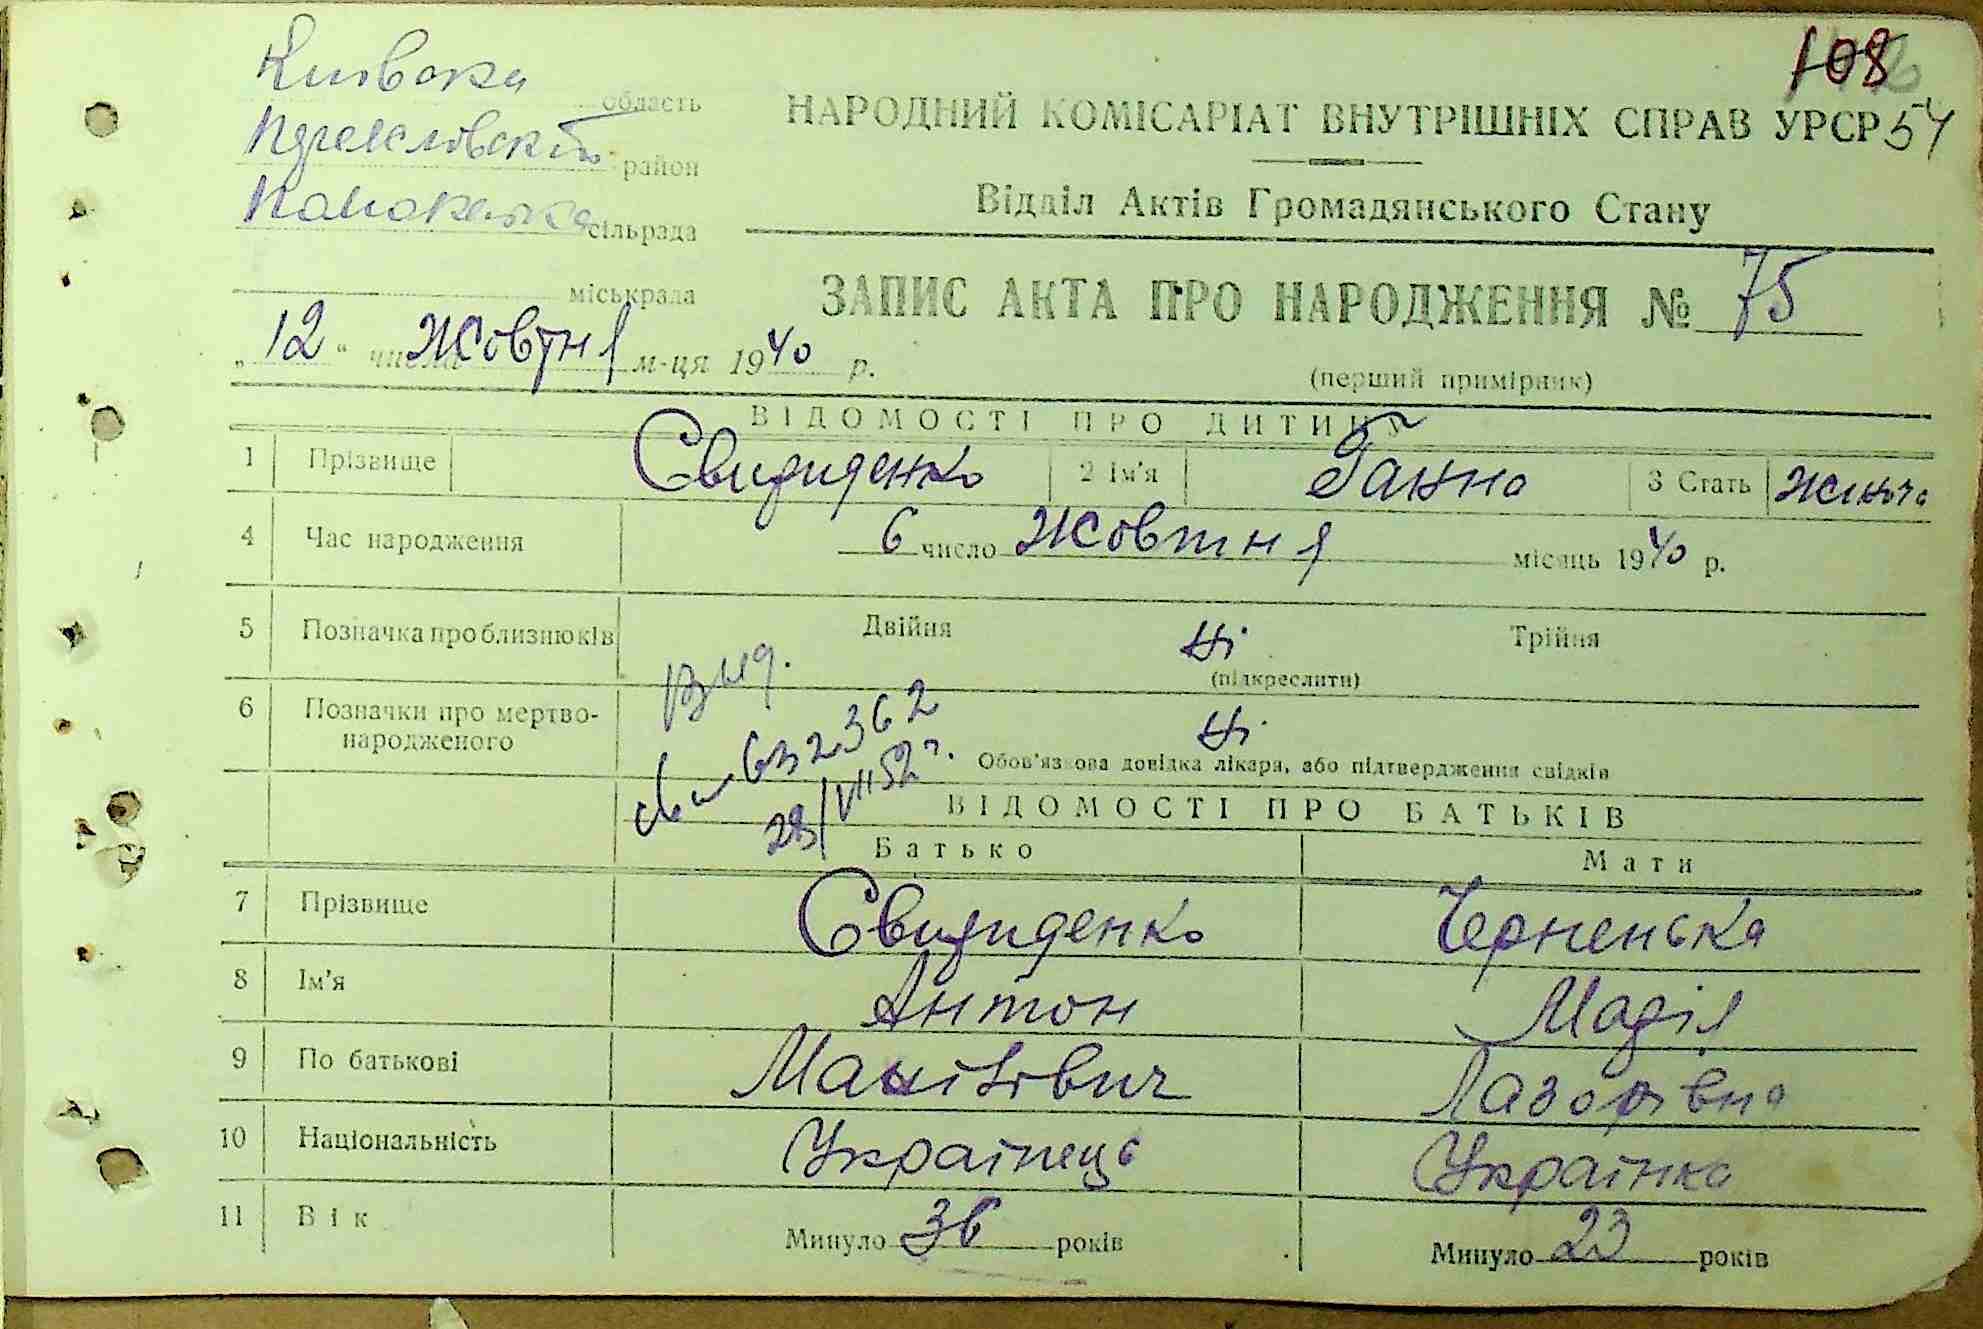 108
54
Київска область
район
сільрада
міськрада
НАРОДНИЙ КОМІСАРІАТ ВНУТРІШНІХ СПРАВ УРСР
Відділ Актів Громадянського Стану
ЗАПИС АКТА ПРО НАРОДЖЕННЯ № 75
(перший примірник)
„12“ числа жовтня м-ця 1940 р.
ВІДОМОСТІ ПРО ДИТИНУ
1 Прізвище Свириденко 2 Ім'я Ганна 3 Стать жіноча
4 Час народження 6 число жовтня місяць 1940 р.
5 Позначка про близнюків Двійня ні Трійня
(підкреслити)
6 Позначки про мертво-
народженого ні
Обов'язкова довідка лікаря, або підтвердження свідків
Выд.
632362
28/VII 52 г.
ВІДОМОСТІ ПРО БАТЬКІВ
Батько Мати
7 Прізвище Свириденко Черненька
8 Ім'я Антон Марія
9 По батькові Лазорівна
10 Національність Українець Українка
11 Вік Минуло 36 років Минуло 23 років